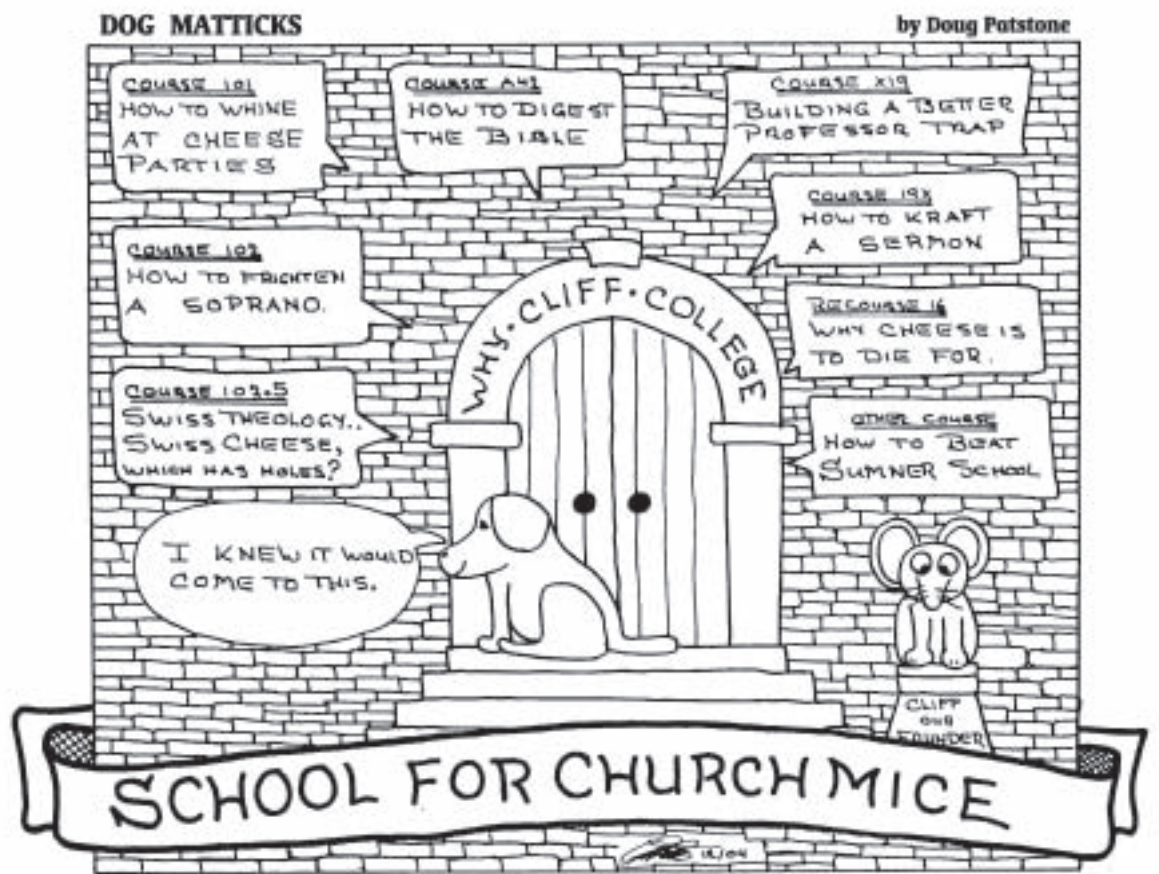 DOG MATTICKS
by Doug Patstone
COURSE 101
HOW TO WHINE
AT CHEESE
PARTIES
COURSE A42
HOW TO DIGEST
THE BIBLE
COURSE X19
BUILDING A BETTER
PROFESSOR TRAP
COURSE 19X
HOW TO KRAFT
A SERMON
COURSE 102
HOW TO FRIGHTEN
A SOPRANO.
RECOURSE 16
WHY CHEESE IS
TO DIE FOR.
COURSE 102.5
SWISS THEOLOGY..
SWISS CHEESE,
WHICH HAS HOLES?
OTHER COURSE
HOW TO BEAT
SUMNER SCHOOL
WHY·CLIFF·COLLEGE
I KNEW IT WOULD
COME TO THIS.
CLIFF
OUR
FOUNDER
SCHOOL FOR CHURCH MICE
12/04